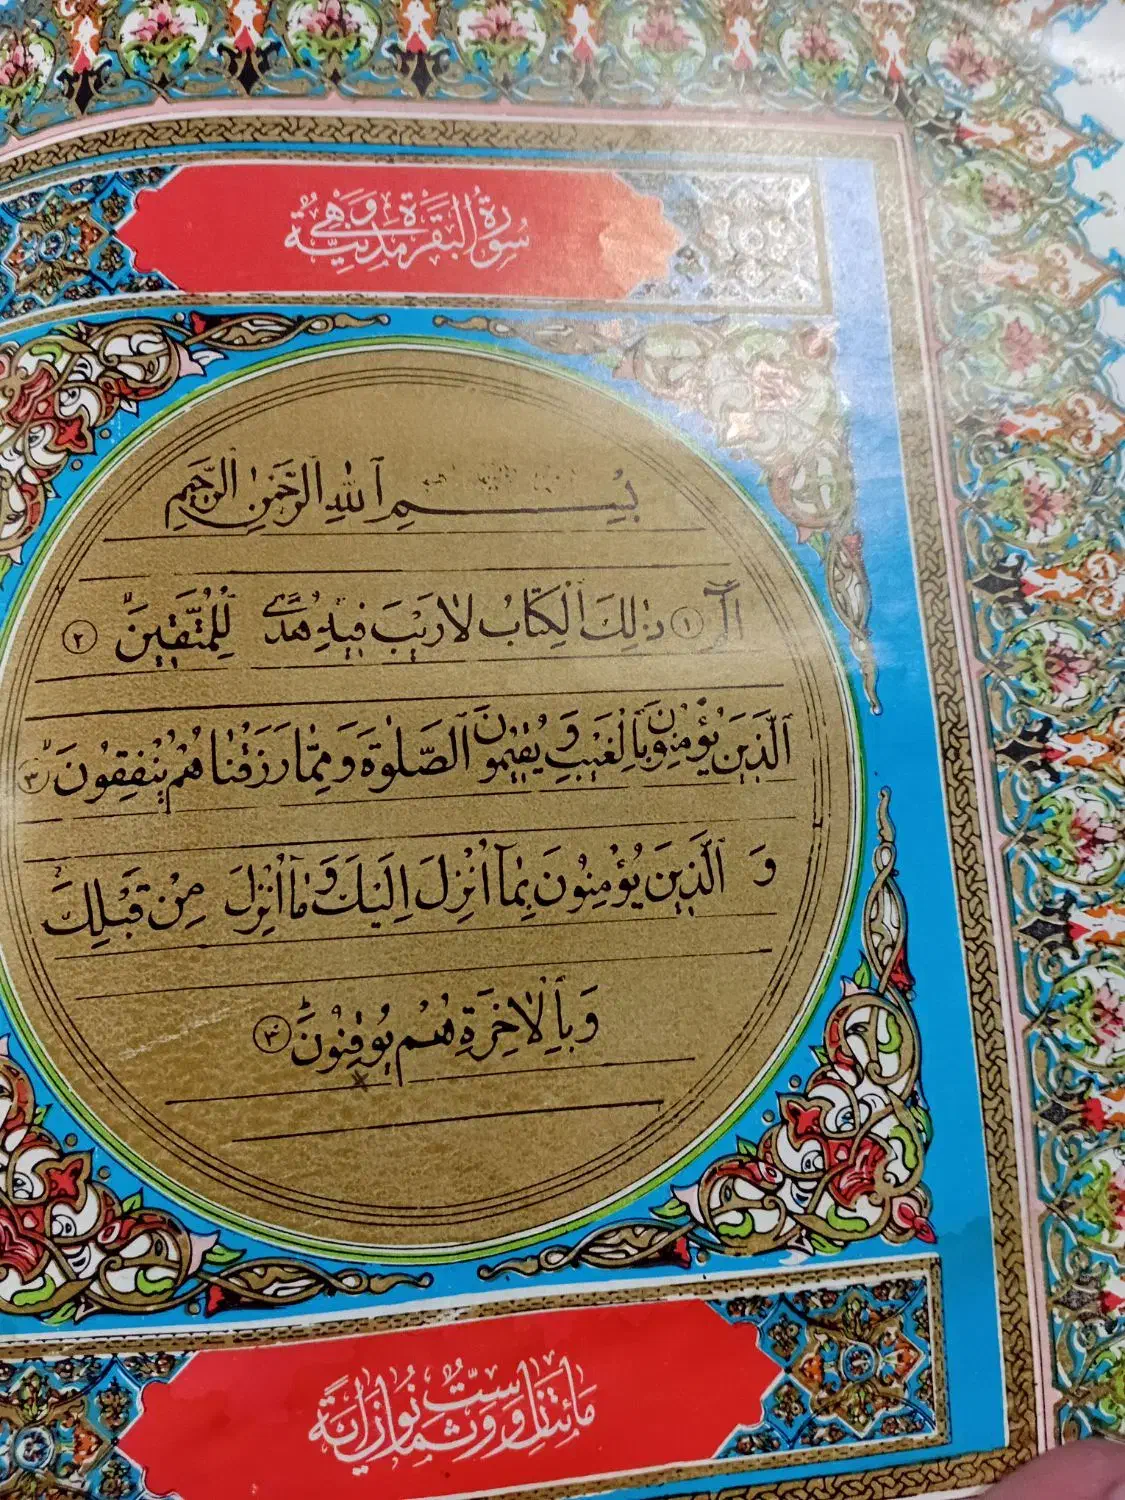 سُورَةُ الْبَقَرَةِ وَهِيَ مَدَنِيَّةٌ
بِسْمِ ٱللهِ ٱلرَّحْمٰنِ ٱلرَّحِيمِ
الٓمٓ ١ ذٰلِكَ ٱلْكِتَابُ لَا رَيْبَ فِيهِ هُدًى لِلْمُتَّقِينَ ٢
ٱلَّذِينَ يُؤْمِنُونَ بِٱلْغَيْبِ وَيُقِيمُونَ ٱلصَّلٰوةَ وَمِمَّا رَزَقْنَاهُمْ يُنْفِقُونَ ٣
وَٱلَّذِينَ يُؤْمِنُونَ بِمَٓا اُنْزِلَ اِلَيْكَ وَمَٓا اُنْزِلَ مِنْ قَبْلِكَ
وَبِٱلْاٰخِرَةِ هُمْ يُوقِنُونَ ٤
مَائَتَانِ وَسِتٌّ وَثَمَانُونَ اٰيَةً